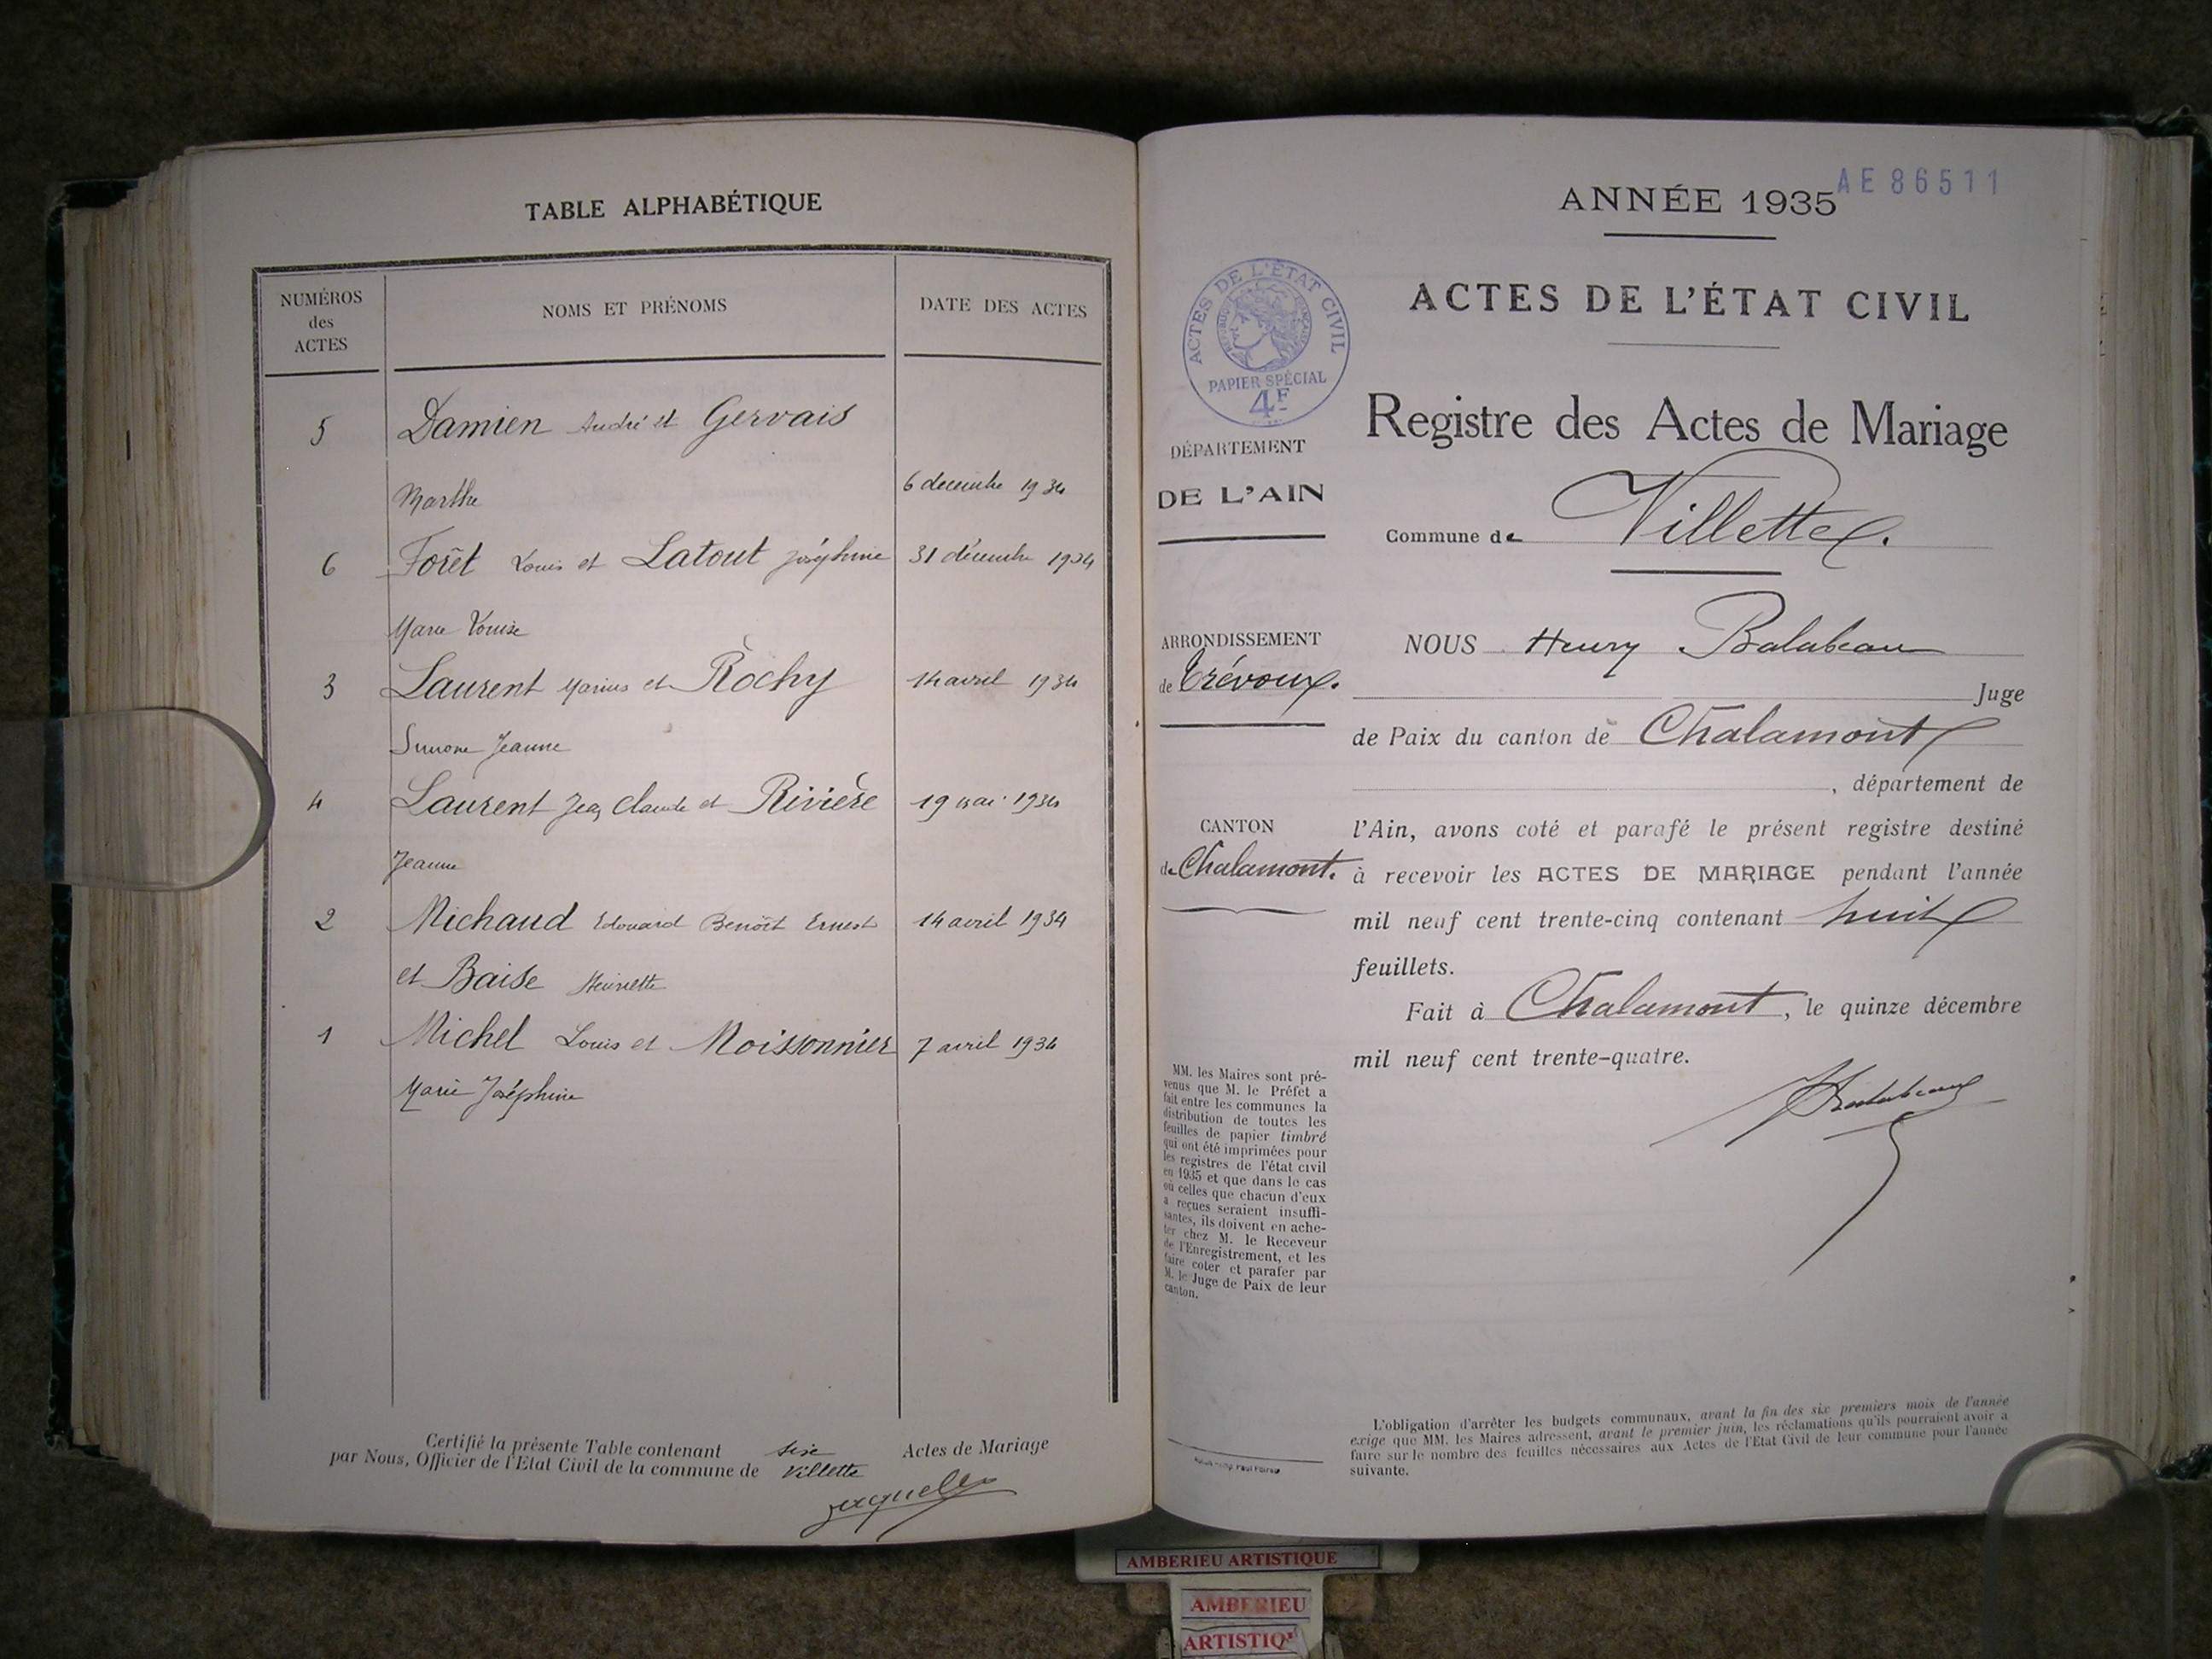 TABLE ALPHABÉTIQUE
NUMÉROS
des
ACTES
NOMS ET PRÉNOMS
DATE DES ACTES
5 Damien André et Gervais
Marthe 6 décembre 1934
6 Forêt Louis et Latout Joséphine 31 décembre 1934
Marie Louise
3 Laurent Marius et Rochy 14 avril 1934
Simone Jeanne
4 Laurent Jean Claude et Rivière 19 mai 1934
Jeanne
2 Michaud Edouard Benoît Ernest 14 avril 1934
et Baise Henriette
1 Michel Louis et Moissonnier 7 avril 1934
Marie Joséphine
Certifié la présente Table contenant six Actes de Mariage
par Nous, Officier de l'Etat Civil de la commune de Villette
AE 86511
ANNÉE 1935
ACTES DE L'ÉTAT CIVIL
ACTES DE L'ÉTAT CIVIL
RÉPUBLIQUE FRANÇAISE
PAPIER SPÉCIAL
4F
Registre des Actes de Mariage
DÉPARTEMENT
DE L'AIN
Commune de Villette
ARRONDISSEMENT
de Trévoux.
CANTON
de Chalamont.
NOUS Henry Balabeau
Juge
de Paix du canton de Chalamont
, département de
l'Ain, avons coté et parafé le présent registre destiné
à recevoir les ACTES DE MARIAGE pendant l'année
mil neuf cent trente-cinq contenant huit
feuillets.
Fait à Chalamont, le quinze décembre
mil neuf cent trente-quatre.
MM. les Maires sont pré-
venus que M. le Préfet a
fait entre les communes la
distribution de toutes les
feuilles de papier timbré
qui ont été imprimées pour
les registres de l'état civil
en 1935 et que dans le cas
où celles que chacun d'eux
a reçues seraient insuffi-
santes, ils doivent en ache-
ter chez M. le Receveur
de l'Enregistrement, et les
faire coter et parafer par
M. le Juge de Paix de leur
canton.
L'obligation d'arrêter les budgets communaux, avant la fin des six premiers mois de l'année
exige que MM. les Maires adressent, avant le premier juin, les réclamations qu'ils pourraient avoir a
faire sur le nombre des feuilles nécessaires aux Actes de l'Etat Civil de leur commune pour l'année
suivante.
AMBERIEU ARTISTIQUE
AMBERIEU
ARTISTIQ